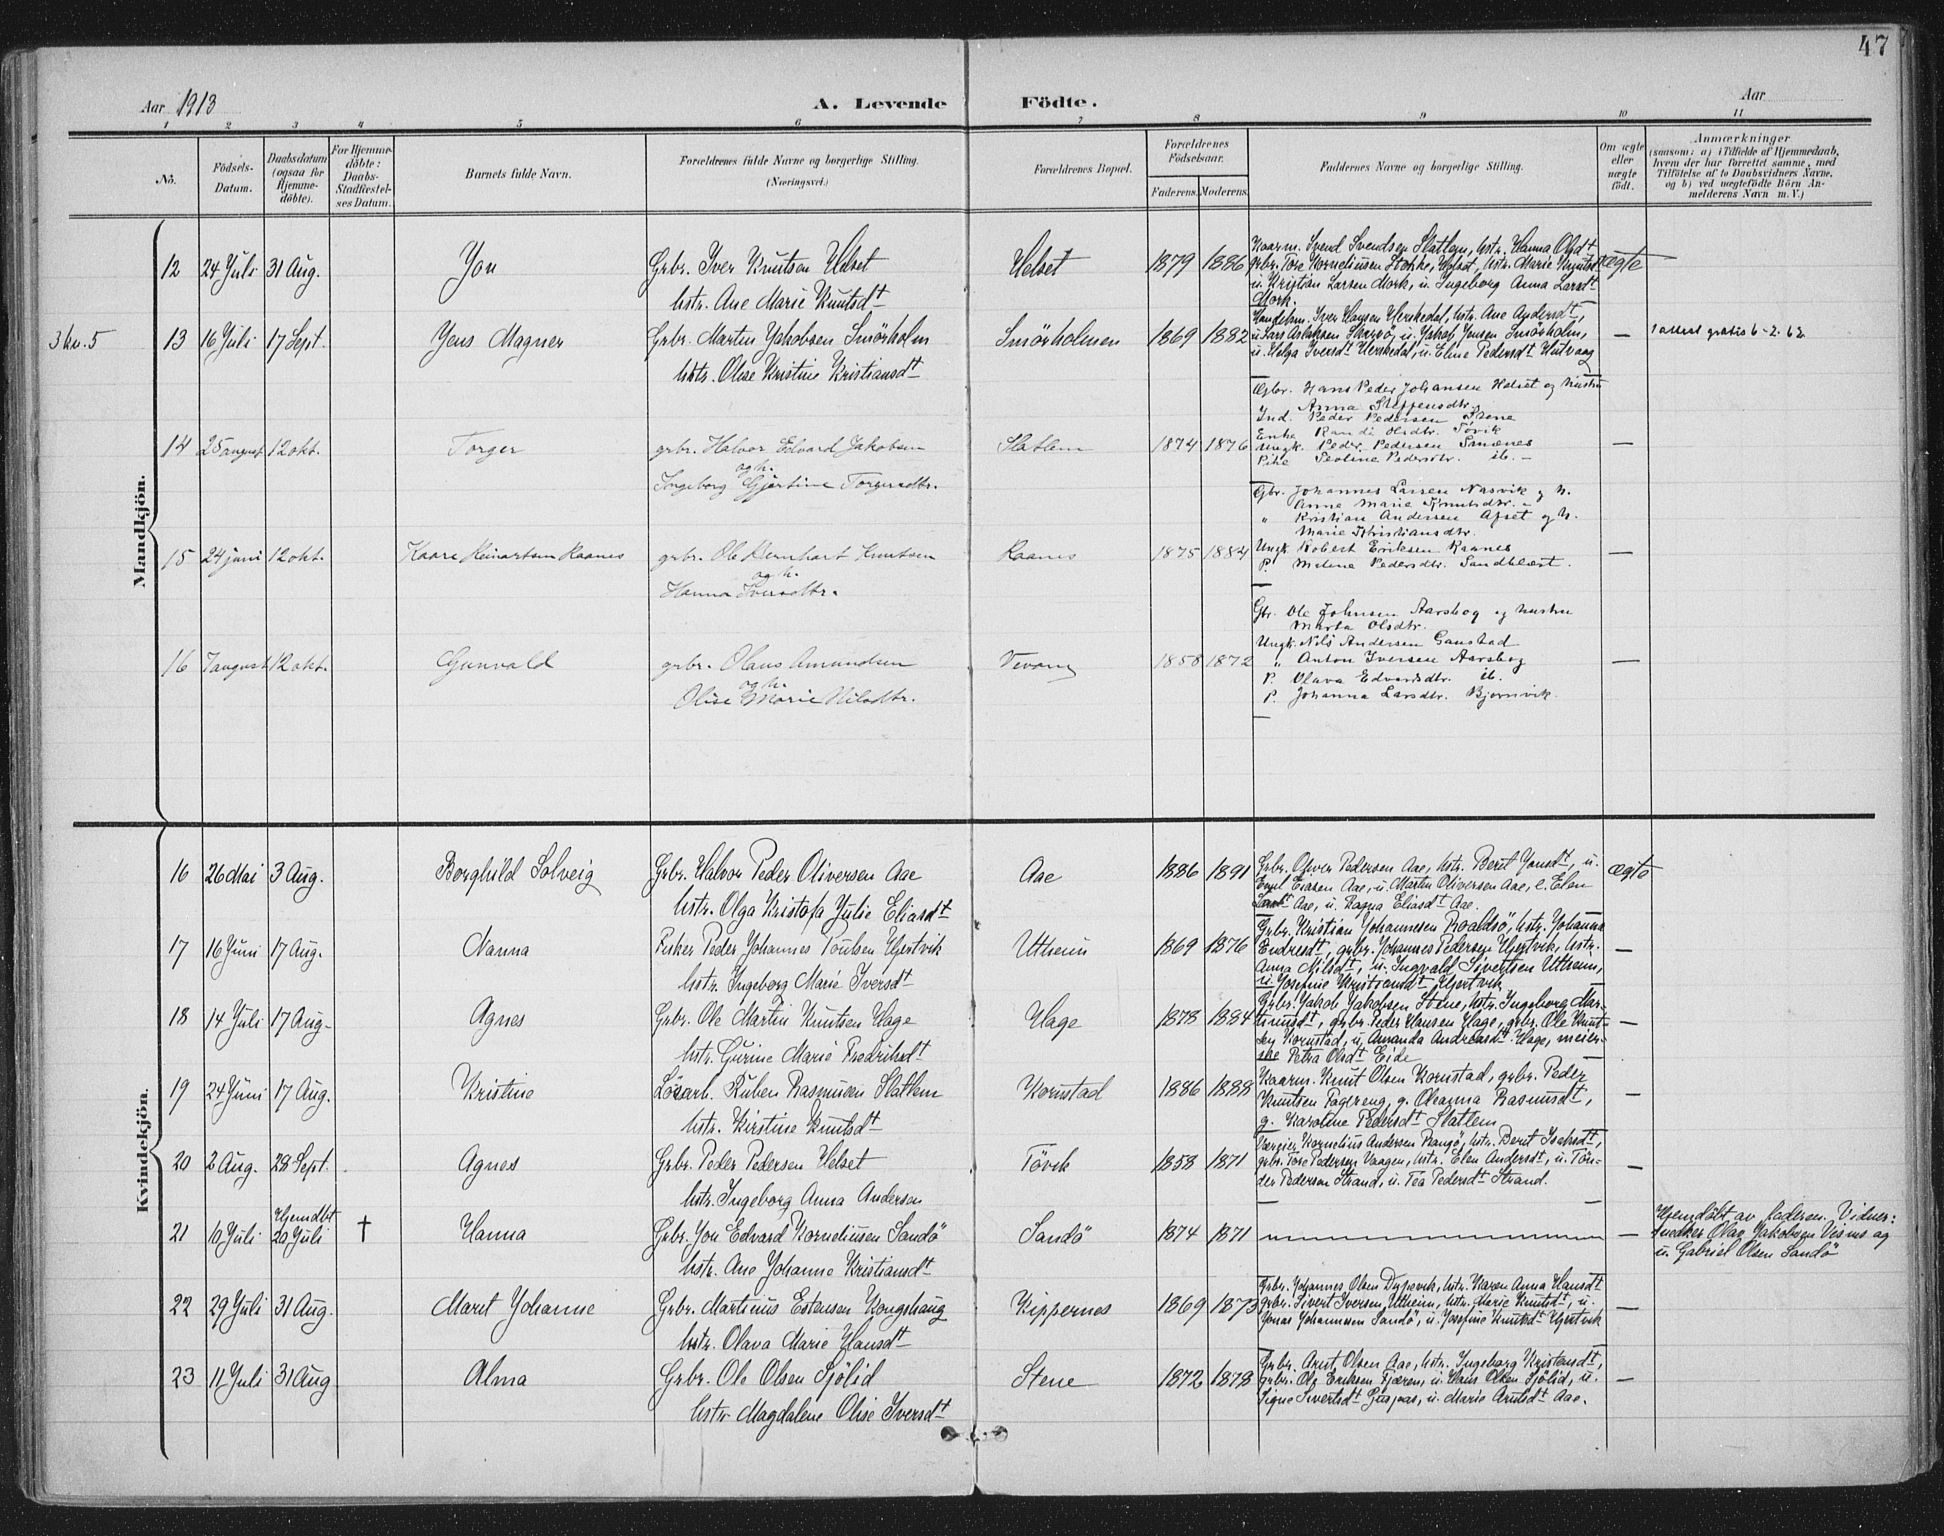 47
Aar 1913
A. Levende Födte.
Aar
1 2 3 4 5 6 7 8 9 10 11
No.
Födsels-
Datum.
Daabsdatum
(ogsaa for
Hjemme-
döbte).
For Hjemme-
döbte:
Daabs-
Stadfæstel-
ses Datum.
Barnets fulde Navn.
Forældrenes fulde Navne og borgerlige Stilling.
(Næringsvei.)
Forældrenes Bopæl.
Forældrenes
Födselsaar.
Faderens. Moderens.
Faddernes Navne og borgerlige Stilling.
Om ægte
eller
uægte
födt.
Anmærkninger
(saasom: a) i Tilfælde af Hjemmedaab,
hvem der har forrettet samme, med
Tilföielse af to Daabsvidners Navne,
og b) ved uægtefödte Börn An-
melderens Navn m. V.)
Mandkjön.
12 24 Juli 31 Aug. Jon Grbr. Iver Knutsen Helset
hstr. Ane Marie Knutsdt
Helset 1879 1886
Kaarm. Svend Svendsen Slatlem, hstr. Hanna Olsdt
grbr. Tore Korneliussen Stokke, Helset, hstr. Marie Knutsdt
u. Kristian Larsen Mork, u. Ingeborg Anna Larsdt
Mork.
ægte
3 kv. 5
13 16 Juli 17 Sept. Jens Magner Grbr. Martin Jakobsen Smörholm
hstr. Olise Kristine Kristiansdt
Smörholmen 1869 1882
Handelsm. Iver Hansen Herskedal, hstr. Ane Andersdt,
u. Lars Aslaksen Skarsö, u. Jakob Jensen Smörholm,
u. Helga Iversdt Herskedal, u. Eline Pedersdt Hutvaag
—
1 attest gratis 6-2.62
14 25 august 12 okt. Torger grbr. Halvor Edvard Jakobsen
og h.
Ingeborg Gjertine Torgersdtr.
Slatlem 1874 1876
Gbr. Hans Peder Johansen Helset og hustru
Anna Steffensdtr.
Ind. Peder Pedersen Stene
Enke Randi Olsdtr. Tövik
Ungk. Peder Pedersen Smenes
Pike Peoline Pedersdtr. ib. —
—
15 24 juni 12 okt. Kaare Reinartsen Raanes grbr. Ole Bernhart Knutsen
og h.
Hanna Iversdtr.
Raanes 1875 1884
Gbr. Johannes Larsen Nasvik og h.
Anne Marie Knutsdtr. -
" Kristian Andersen Afset og h.
Marie Kristiansdtr.
Ungk. Robert Eriksen Raanes
P. Milene Pedersdtr. Sandblæst.
—
16 7 august 12 okt. Gunvald grbr. Olaus Amundsen
og h.
Olise Marie Nilsdtr.
Vevang 1858 1872
Gbr. Ole Johnsen Aarsbog og hustru
Marta Olsdtr.
Ungk. Nils Andersen Ganstad
" Anton Iversen Aarsbog
P. Olava Edvardsdtr. ib.
P. Johanna Larsdtr. Bjørnvik.
—
Kvindekjön.
16 26 Mai 3 Aug. Borghild Solveig Grbr. Halvor Peder Oliversen Aae
hstr. Olga Kristofa Julie Eliasdt
Aae 1886 1891
Grbr. Oliver Pedersen Aae, hstr. Berit Jonsdt, u.
Emil Eiasen Aae, u. Martin Oliversen Aae, e. Elen
Aae, u. Ragna Eliasdt Aae.
ægte
17 16 Juni 17 Aug. Nanna Fisker Peder Johannes Poulsen Hjertvik
hstr. Ingeborg Marie Iversdt
Utheim 1869 1876
Grbr. Kristian Johannesen Roaldsö, hstr. Johanna
Endresdt, grbr. Johannes Pedersen Hjertvik, hstr.
Anna Nilsdt, u. Ingvald Sivertsen Utheim,
u. Josefine Kristiansdt, Hjertvik
—
18 14 Juli 17 Aug. Agnes Grbr. Ole Martin Knutsen Hage
hstr. Gurine Marie Fredriksdt
Hage 1878 1884
Grbr. Jakob Jakobsen Stene, hstr. Ingeborg Mar-
tinusdt, grbr. Peder Hansen Hage, grbr. Ole Knut-
sen Kornstad, u. Amanda Andreasdt Hage, meier-
ske Petra Olsdt Eide
—
19 24 Juni 17 Aug. Kristine Lösarb. Ruben Rasmusen Slatlem
hstr. Kirstine Knutsdt
Kornstad 1886 1888
Kaarm. Knut Olsen Kornstad, grbr. Peder
Knutsen Fagereng, g. Oleanna Rasmusdt,
g. Karoline Pedersdt Slatlem
—
20 2 Aug. 28 Sept. Agnes Grbr. Peder Pedersen Helset
hstr. Ingeborg Anna Andersen
Tövik 1858 1871
Værgier Kornelius Andersen Rangö, hstr. Berit Isaksdt,
grbr. Tore Pedersen Vaagen, hstr. Elen Andersdt, u. Tön-
der Pedersen Strand, u. Tea Pedersdt Strand.
—
21 10 Juli Hjemdbt
20 Juli † Hanna Grbr. Jon Edvard Korneliusen Sandö
hstr. Ane Johanne Kristiansdt
Sandö 1874 1871
—
Hjemdöbt av faderen. Vidner:
snedker Olav Jakobsen Visnes og
u. Gabriel Olsen Sandö
22 29 Juli 31 Aug. Marit Johanne Grbr. Martinus Estensen Kongshaug
hstr. Olava Marie Hansdt
Kippernes 1869 1873
Grbr. Johannes Olsen Dypevik, hstr. Karen Anna Hansdt
grbr. Sivert Iversen, Utheim, hstr. Marie Knutsdt, u.
Jonas Johannesen Sandö, u. Josefine Knutsdt Hjertvik
—
23 11 Juli 31 Aug Alma Grbr. Ole Olsen Sjölid
hstr Magdalene Olise Iversdt
Stene 1872 1878
Grbr. Arnt Olsen Aae, hstr. Ingeborg Kristensdt,
grbr. Ole Eriksen Fjæren, u. Hans Olsen Sjölid, u.
Signe Sivertsdt Guspas, u. Marie Arntsdt Aae.
—